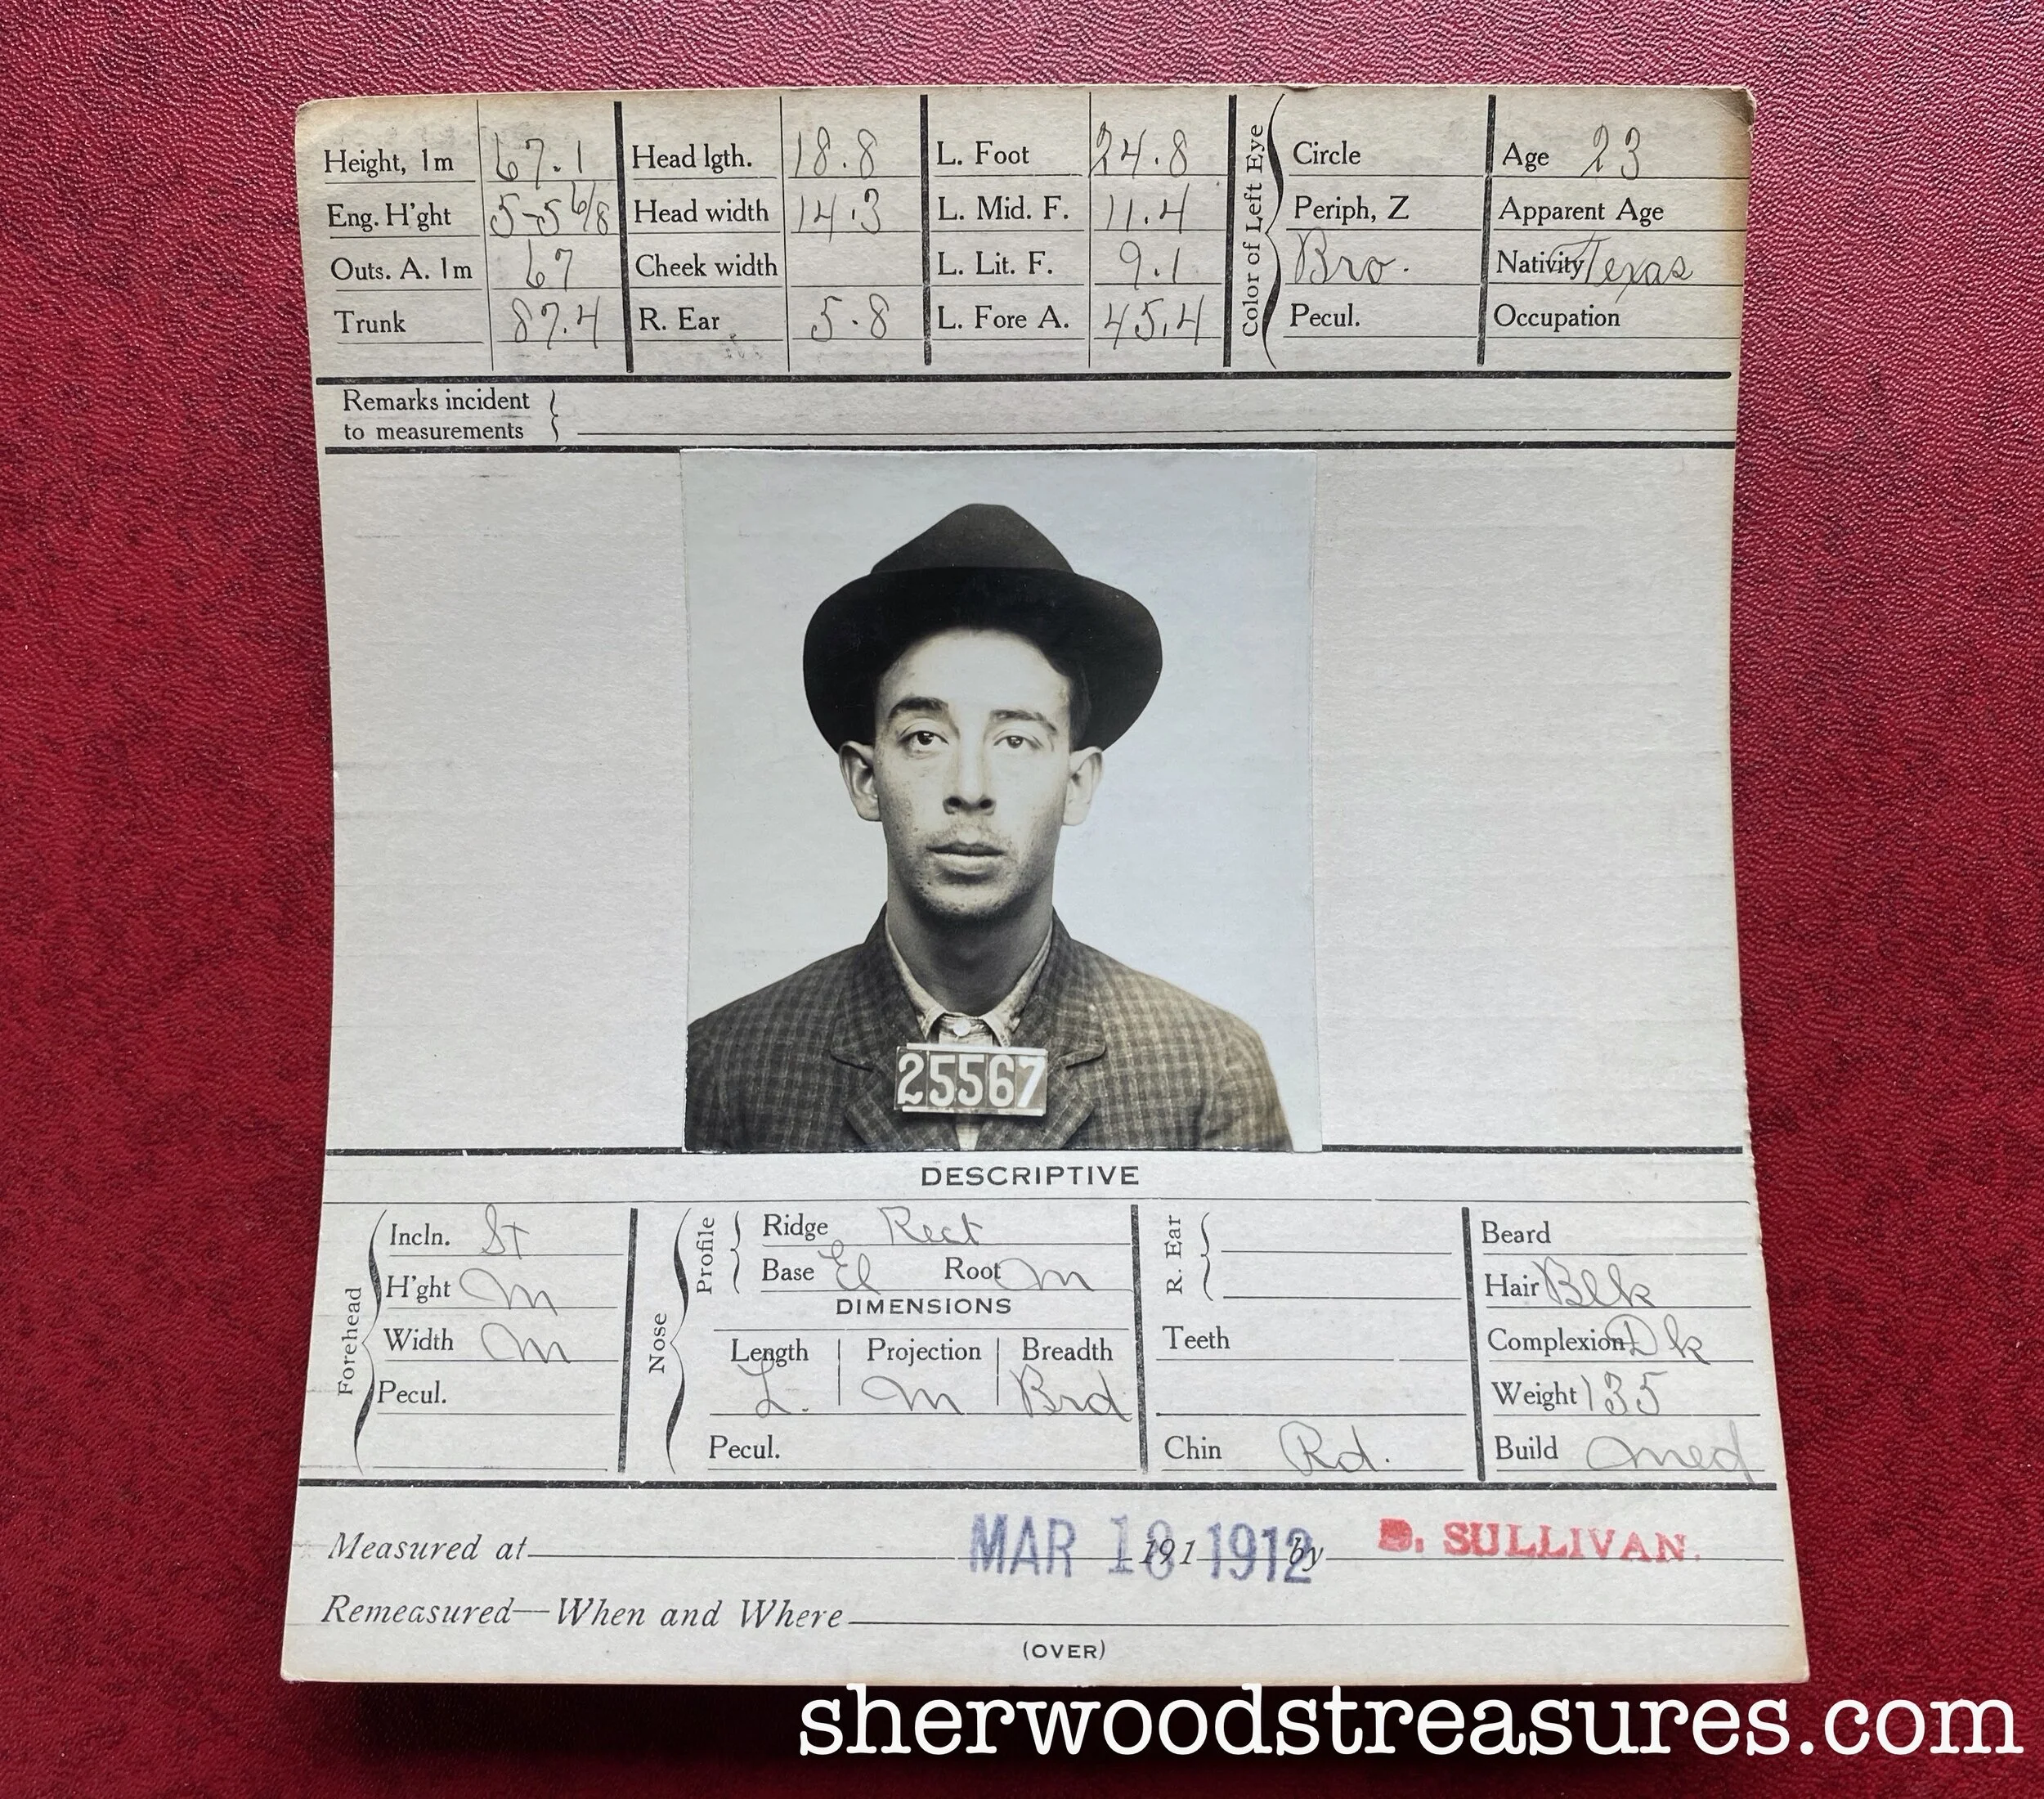 Height, 1m 67.1 Head lgth. 18.8 L. Foot 24.8 Circle Age 23
Eng. H'ght 5-5 6/8 Head width 14.3 L. Mid. F. 11.4 Periph, Z Apparent Age
Outs. A. 1m 67 Cheek width L. Lit. F. 9.1 Bro. Nativity Texas
Trunk 87.4 R. Ear 5.8 L. Fore A. 45.4 Pecul. Occupation
Color of Left Eye
Remarks incident
to measurements
25567
DESCRIPTIVE
Forehead
Incln. St
H'ght m
Width m
Pecul.
Nose
Profile
Ridge Rect
Base El Root m
DIMENSIONS
Length Projection Breadth
L. m Brd
Pecul.
R. Ear
Teeth
Chin Rd.
Beard
Hair Blk
Complexion Dk
Weight 135
Build med
Measured at 191 MAR 18 1912 by D. SULLIVAN.
Remeasured—When and Where
(OVER)
sherwoodstreasures.com